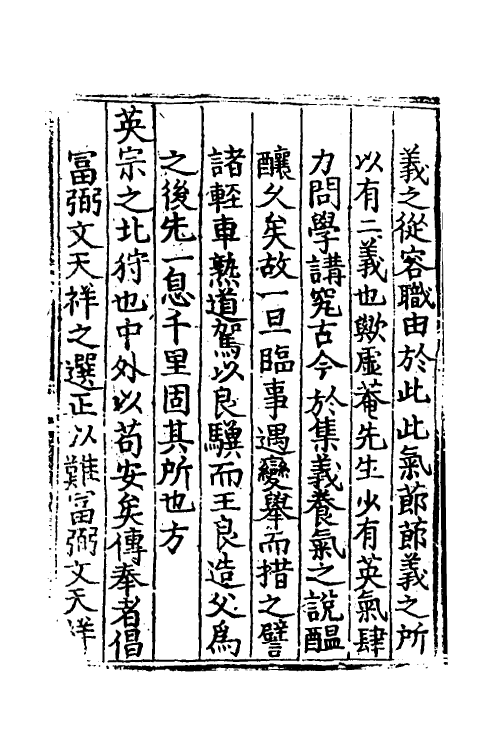 義之從容職由於此此氣莭莭義之所
以有二義也歟虛菴先生少有英氣肆
力問學講究古今於集義養氣之說醖
釀久矣故一旦臨事遇變舉而措之譬
諸輕車熟道駕以良驥而王良造父爲
之後先一息千里固其所也方
英宗之北狩也中外以苟安矣傳奉者倡
富弼文天祥之選正以難富弼文天祥